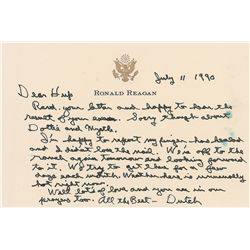 RONALD REAGAN
July 11 1990
Dear Hup
Recd. your letter and happy to hear the
result of your exam. Sorry though about
Dottie and Myrtle.
I'm happy to report my finger has healed
and I didn't lose the nail. We're off to the
ranch again tomorrow and looking forward
to it. We try to get there for a few
days each month. Weather here is immensely
hot right now.
Well lots of love and you are in our
prayers too. All the Best – Dutch